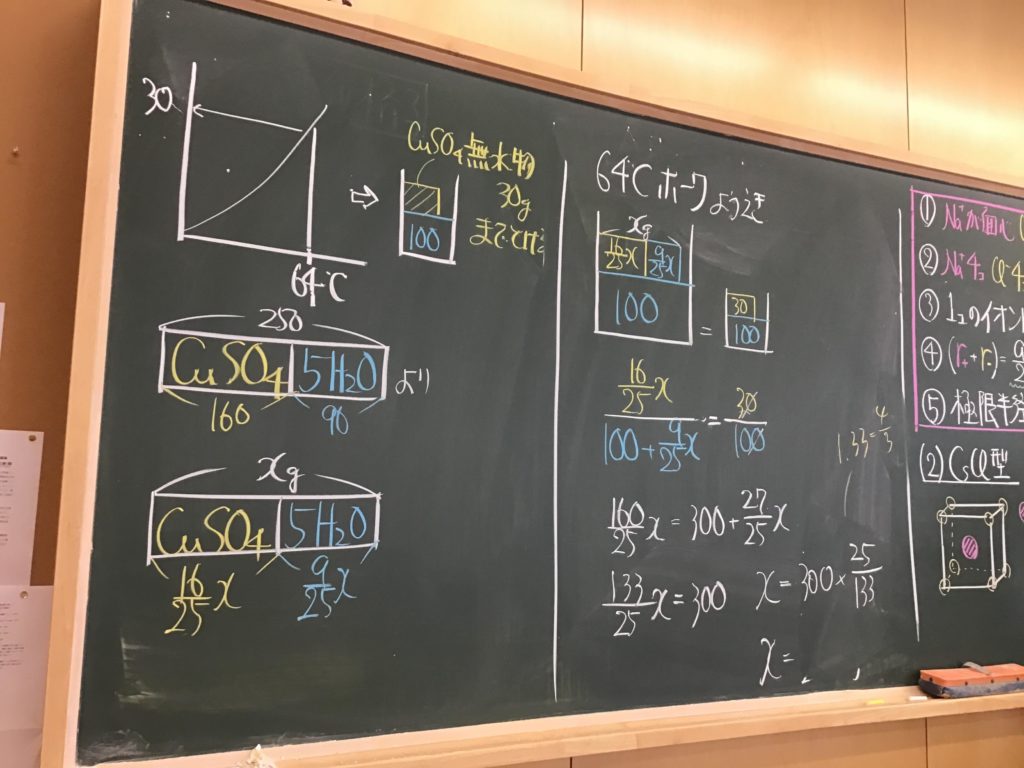 30
64℃
CuSO₄無水物
30g
までとける
100
250
CuSO₄ 5H₂O より
160 90
xg
CuSO₄ 5H₂O
16/25 x 9/25 x
64℃ ホーワようえき
xg
16/25 x 9/25 x
100
=
30
100
16/25 x / (100 + 9/25 x) = 30/100
160/25 x = 300 + 27/25 x
133/25 x = 300
x = 300 × 25/133
x =
1.33 = 4/3
①
②
③
④ (r₊ + r₋) =
⑤ 極限半
(2) CsCl型